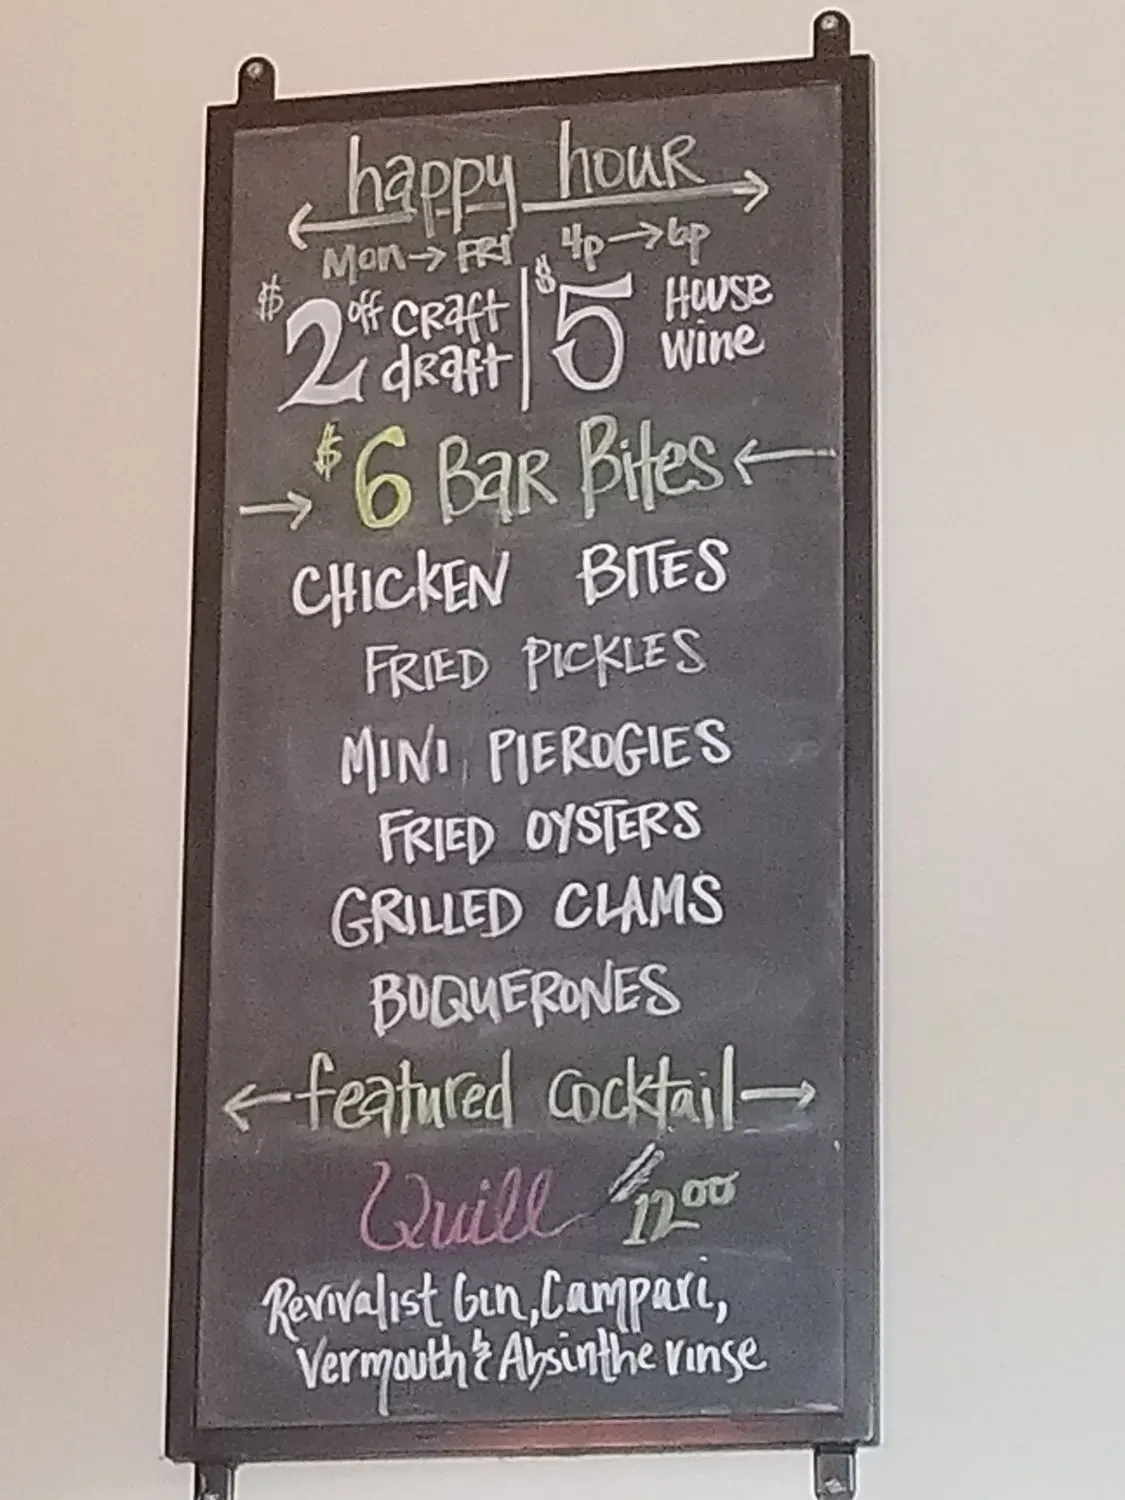 happy hour
Mon → FRI 4p → 6p
$2 off craft draft | $5 House Wine
→ $6 Bar Bites ←
CHICKEN BITES
FRIED PICKLES
MINI PIEROGIES
FRIED OYSTERS
GRILLED CLAMS
BOQUERONES
← featured cocktail →
Quill 12.00
Revivalist Gin, Campari,
Vermouth & Absinthe rinse